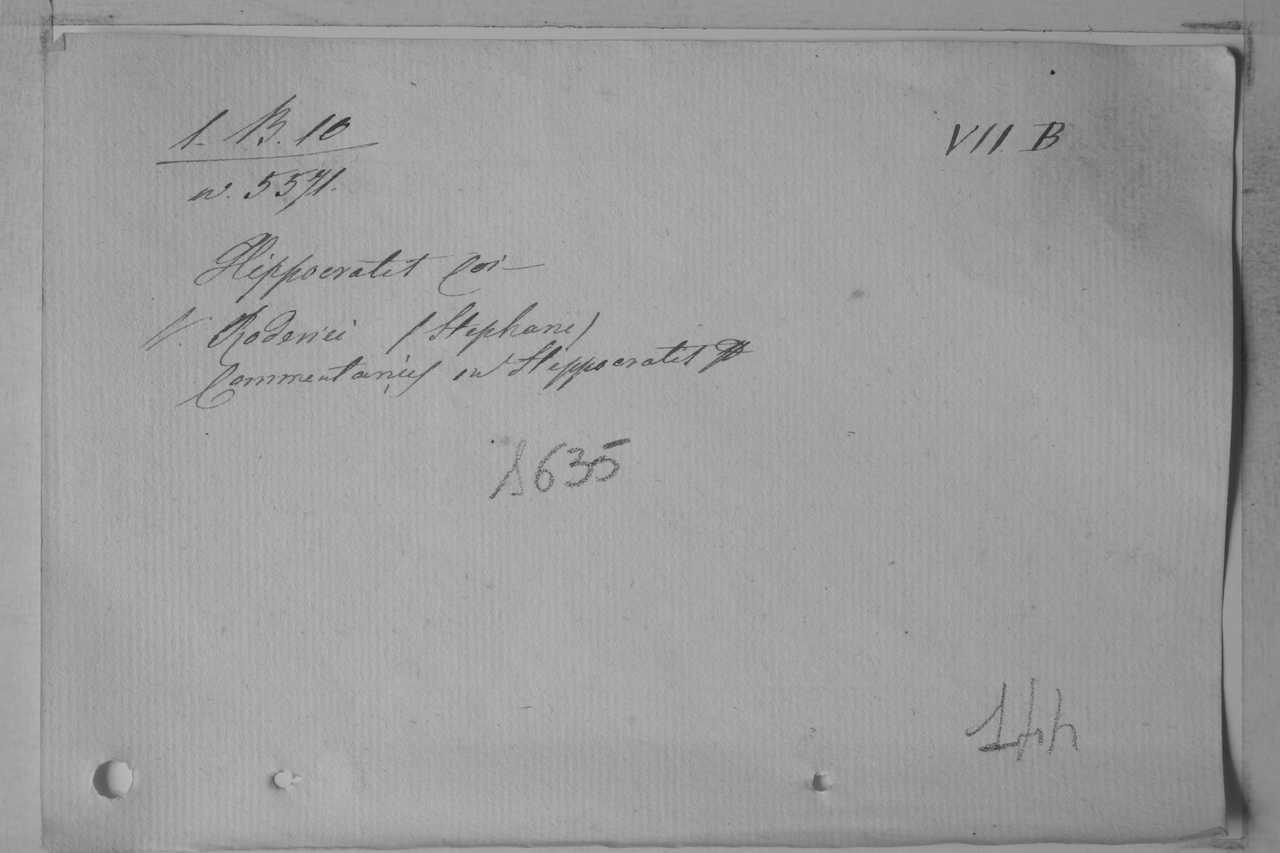 1. B. 10
VII B
n. 5571.
Hippocratis Coi
V. Roderici (Stephani)
Commentarius in Hippocratis
1635